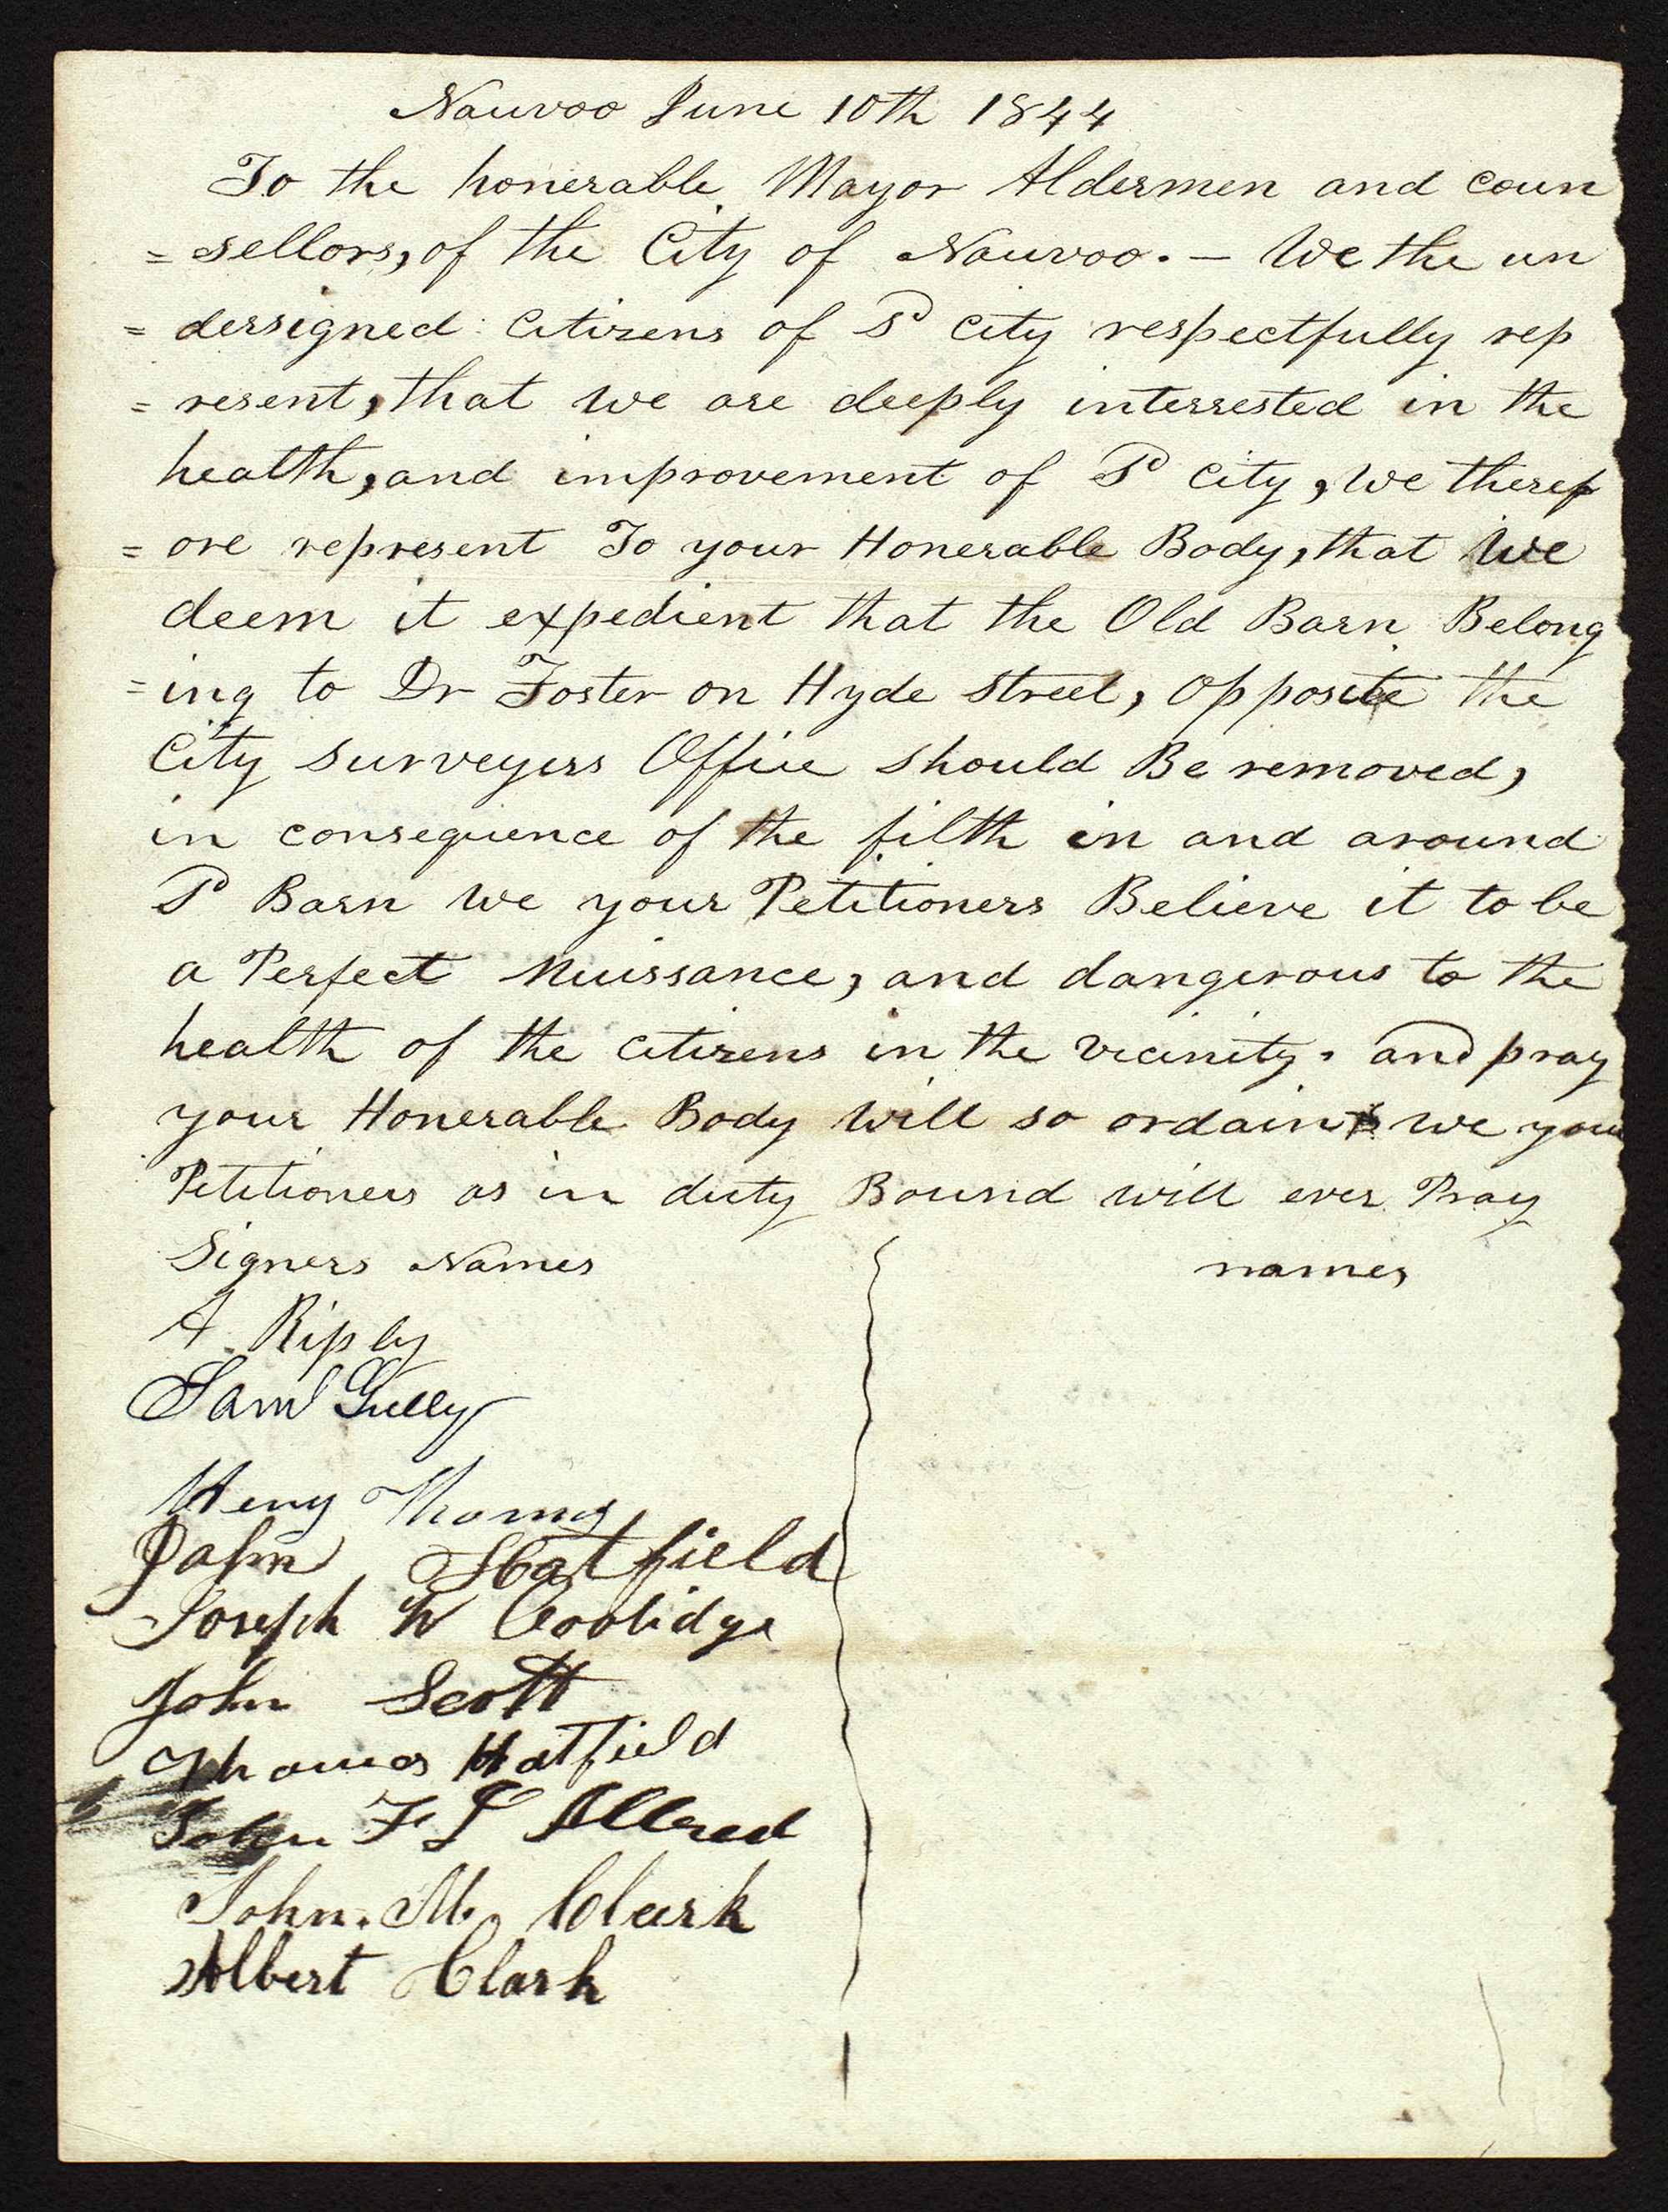 Nauvoo June 10th 1844
To the honerable Mayor Aldermen and coun
=sellors, of the City of Nauvoo. — We the un
=derssigned citizens of Sd city respectfully rep
=resent, that we are deeply interrested in the
health, and improvement of Sd city, we theref
=ore represent To your Honerable Body, that we
deem it expedient that the Old Barn Belong
=ing to Dr Foster on Hyde street, opposite the
City surveyers Office should Be removed,
in consequence of the filth in and around
Sd Barn we your Petitioners Believe it to be
a Perfect Nuissance, and dangerous to the
health of the citizens in the vicinity. and pray
your Honerable Body will so ordain we your
Petitioners as in duty Bound will ever Pray
Signers Names names
A. Riply
Saml Gully
Henry Thomas
John Hatfield
Joseph W Coolidge
John Scott
Thomas Hatfield
John F L Allred
John. M. Clark
Albert Clark